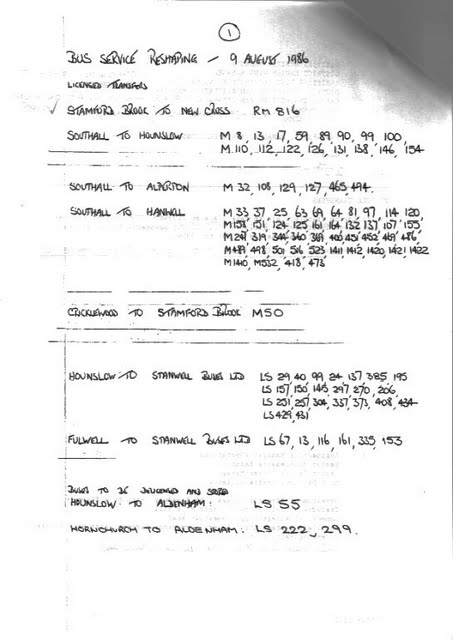 1
BUS SERVICE RESHAPING - 9 AUGUST 1986
LICENSED TRANSFERS
✓ STAMFORD BROOK TO NEW CROSS RM 816
SOUTHALL TO HOUNSLOW M 8, 13, 17, 59, 89, 90, 99, 100,
M 110, 112, 122, 126, 131, 138, 146, 154
SOUTHALL TO ALPERTON M 32, 108, 129, 127, 465, 494.
SOUTHALL TO HANWELL M 33, 37, 25, 63, 69, 64, 81, 97, 114, 120,
M 158, 151, 124, 125, 161, 164, 132, 137, 107, 155,
M 247, 319, 344, 340, 369, 400, 451, 452, 469, 486,
M 489, 498, 501, 516, 523, 1411, 1412, 1420, 1421, 1422
M 1410, M532, 418, 473
CRICKLEWOOD TO STAMFORD BROOK M50
HOUNSLOW TO STANWELL BUSES LTD LS 29 40 99 24 137 385 195
LS 157, 150, 145, 297, 270, 206,
LS 251, 257, 304, 337, 373, 408, 434
LS 429, 431
FULWELL TO STANWELL BUSES LTD LS 67, 13, 116, 161, 335, 153
BUSES TO BE DELICENSED AND STORED
HOUNSLOW TO ALDENHAM: LS 55
HORNCHURCH TO ALDENHAM: LS 222, 299.